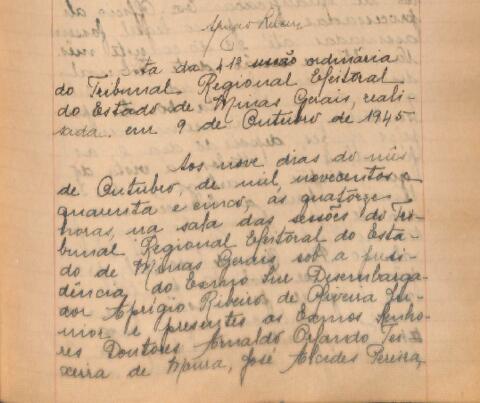 Aprigio Ribeiro
Ata da 41ª sessão ordinária
do Tribunal Regional Eleitoral
do Estado de Minas Gerais, reali-
sada em 9 de Outubro de 1945
Aos nove dias do mês
de Outubro, de mil, novecentos e
quarenta e cinco, às quatorze
horas, na sala das sessões do Tri-
bunal Regional Eleitoral do Esta-
do de Minas Gerais, sob a presi-
dência, do Exmo Snr Desembarga-
dor Aprígio Ribeiro de Oliveira Ju-
nior e presentes os Exmos Senho-
res Doutores Arnaldo Orlando Tei-
xeira de Moura, José Alcides Pereira,